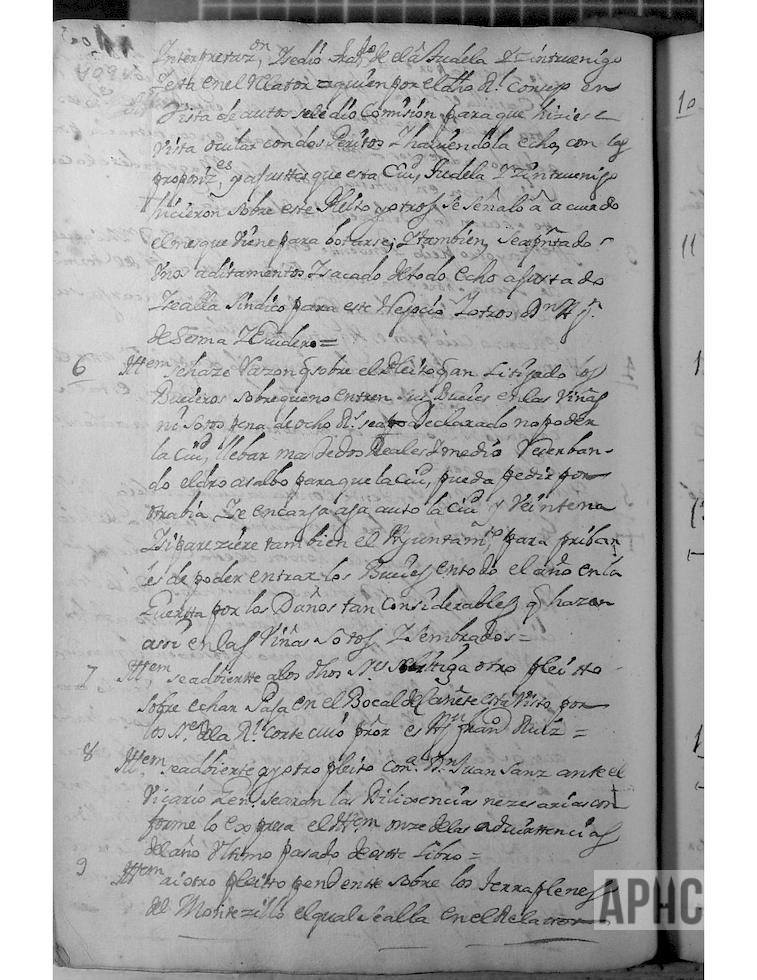 Interpretaz.on, Isedió de Tudela Izintruenigo
esta en el Relator aquien por el dho R.l Consejo en
Vista de autos sele dio Comision, para que hiziese
vista ocular con dos Peritos I haviendola echo, con las
que esta Ciu.d Tudela Izintruenigo
hicieron sobre este Pleito y otros, se Señalo
el mes que Viene para botarse; Itambien,
Unos aditamentos Isacado de todo echo ajustado
Iealla Sindico para este Negocio Iotros, D.n
de Sema IEscudero=
6 Ittem sehaze Razon q sobre el Pleito q an Litigado los
Bueieros sobre que no entren sus Bueies en las Viñas
ni Sotos pena de ocho R.s sea Declarado no poder
la Ciu.d, llebar mas de dos Reales Imedio Reserban-
do el dro asalbo para que la Ciu.d, pueda pedir por
otra bia Ie encarga aya auto la Ciu.d y Veintena
Isi pareziere tambien el Ayuntam.to para
es de poder entrar los Bueies en todo el año en la
Huerta por los Daños tan Considerables q hazen
assi en las Viñas Sotos Isembrados=
7 Ittem, seadbierte alos dhos S.res se litiga otro pleitto
sobre echar Paja en el Bocal de Cañete esta Visto por
los S.res dela R.l Corte cuio es fran.co Ruiz=
8 Ittem seadbierte ay otro pleito con.a D.n Juan Sanz ante el
Vicario Gen.l, searan las Dilixencias nezesarias con
forme lo expresa el Ittem onze delas advierttencias
del año Ultimo pasado de este Libro=
9 Ittem ai otro pleitto pendente sobre los terraplenes
del Montezillo el qual sealla en el Relattor
10
11
APHC